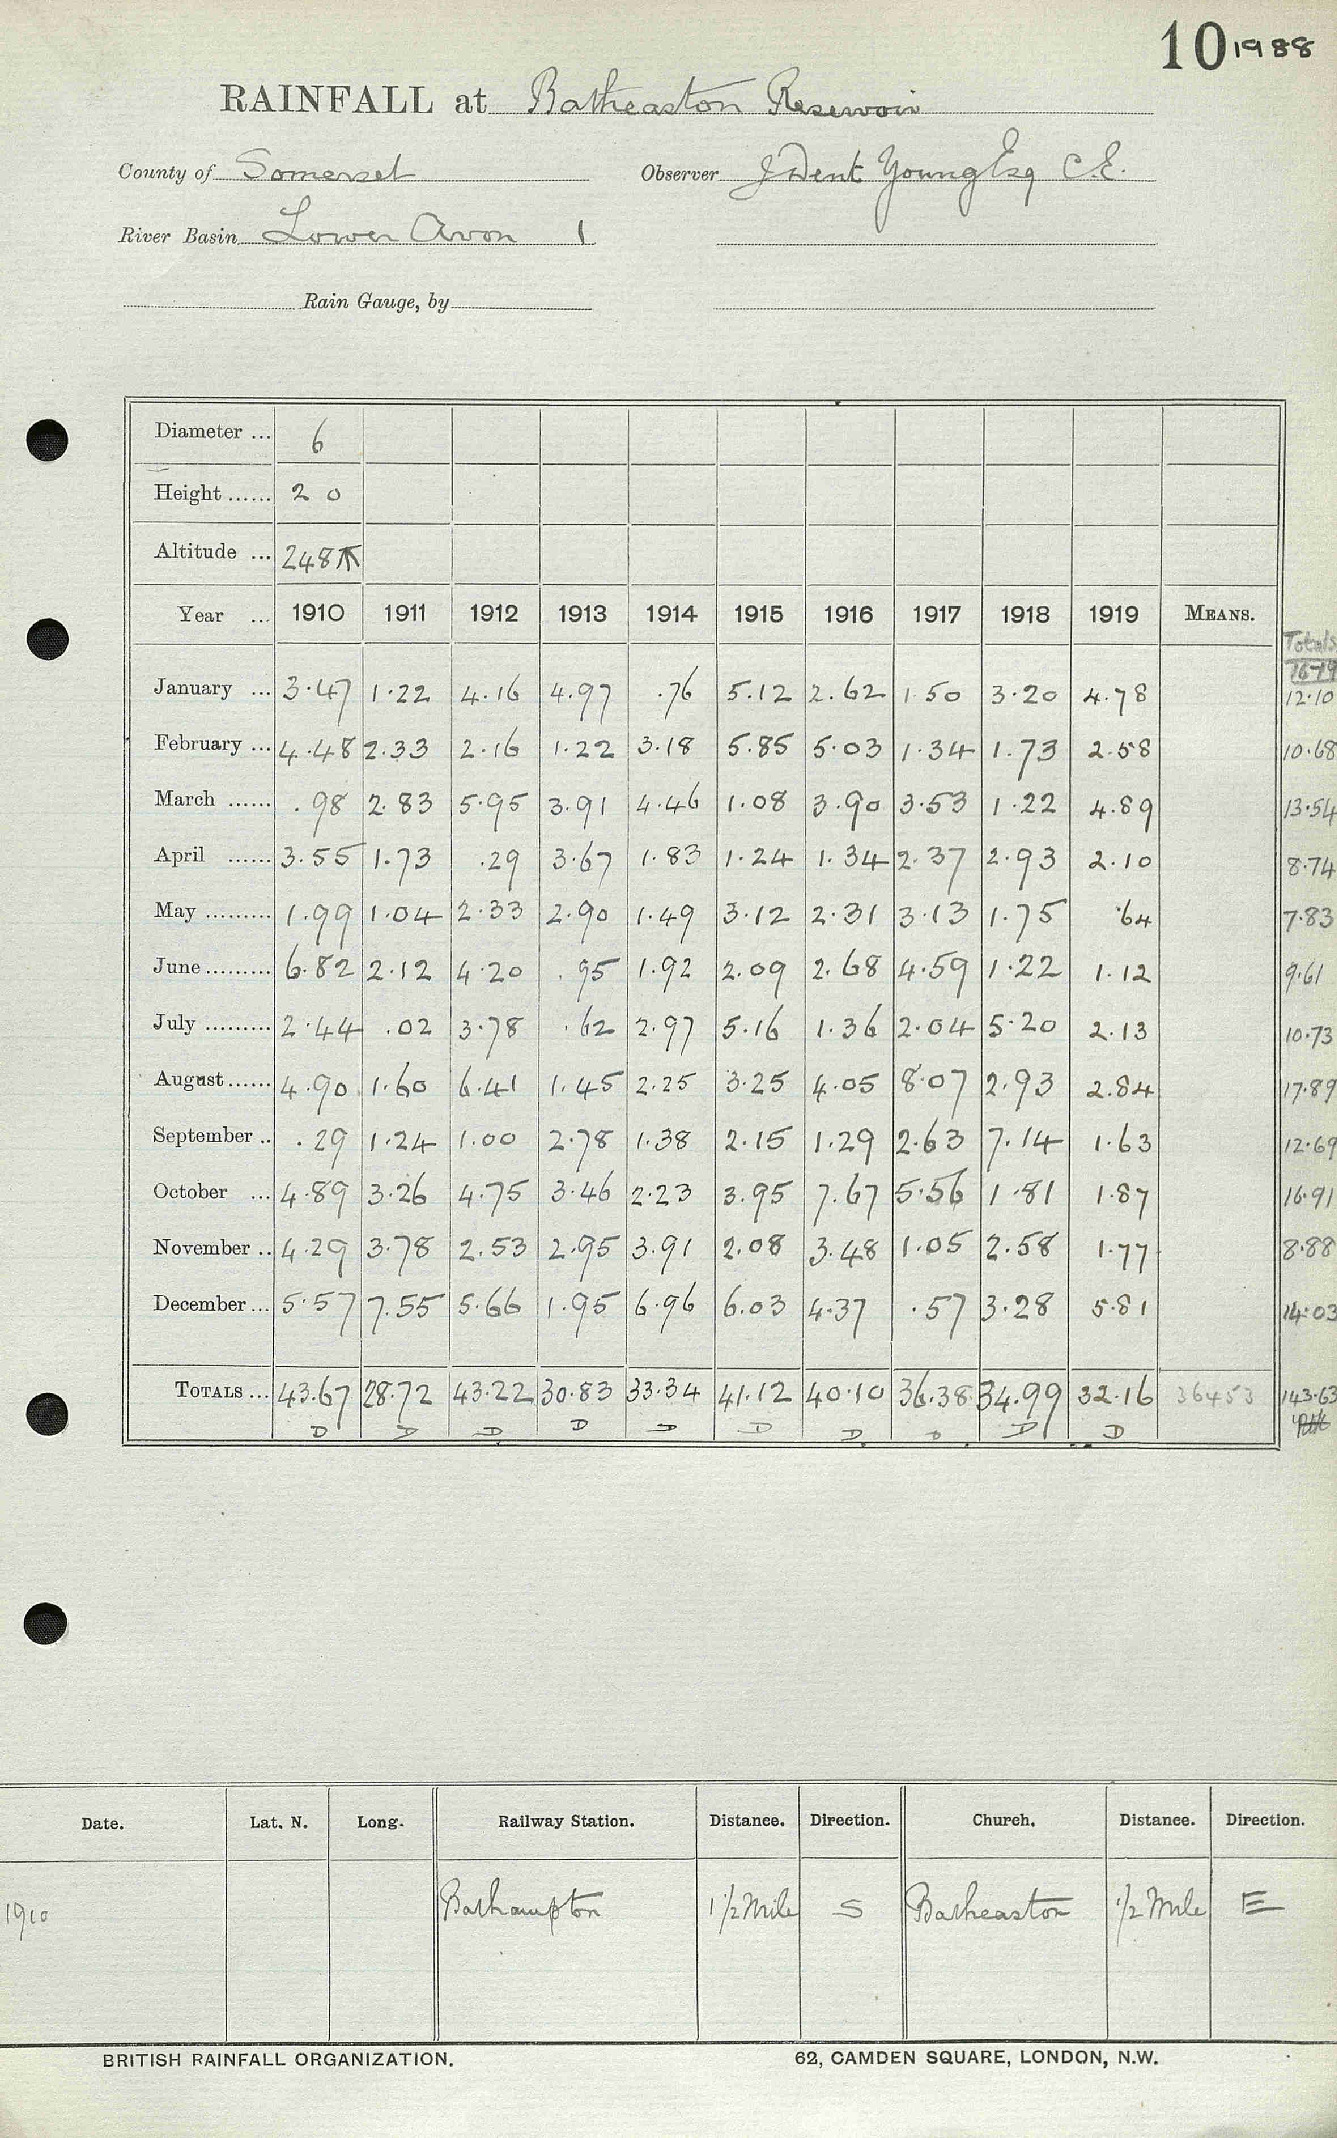 10 1988
RAINFALL at Batheaston Reservoir
County of Somerset Observer J Dent Young Esq C.E.
River Basin Lower Avon 1
Rain Gauge, by
Diameter ... 6
Height ...... 2 0
Altitude ... 248
Year ... 1910 1911 1912 1913 1914 1915 1916 1917 1918 1919 MEANS. Totals
16-19
January ... 3.47 1.22 4.16 4.97 .76 5.12 2.62 1.50 3.20 4.78 12.10
February ... 4.48 2.33 2.16 1.22 3.18 5.85 5.03 1.34 1.73 2.58 10.68
March ...... .98 2.83 5.95 3.91 4.46 1.08 3.90 3.53 1.22 4.89 13.54
April ...... 3.55 1.73 .29 3.67 1.83 1.24 1.34 2.37 2.93 2.10 8.74
May ......... 1.99 1.04 2.33 2.90 1.49 3.12 2.31 3.13 1.75 .64 7.83
June ......... 6.82 2.12 4.20 .95 1.92 2.09 2.68 4.59 1.22 1.12 9.61
July ......... 2.44 .02 3.78 .62 2.97 5.16 1.36 2.04 5.20 2.13 10.73
August ...... 4.90 1.60 6.41 1.45 2.25 3.25 4.05 8.07 2.93 2.84 17.89
September .. .29 1.24 1.00 2.78 1.38 2.15 1.29 2.63 7.14 1.63 12.69
October ... 4.89 3.26 4.75 3.46 2.23 3.95 7.67 5.56 1.81 1.87 16.91
November .. 4.29 3.78 2.53 2.95 3.91 2.08 3.48 1.05 2.58 1.77 8.88
December ... 5.57 7.55 5.66 1.95 6.96 6.03 4.37 .57 3.28 5.81 14.03
TOTALS ... 43.67 28.72 43.22 30.83 33.34 41.12 40.10 36.38 34.99 32.16 36453 143.63
D D D D D D D D D D
Date. Lat. N. Long. Railway Station. Distance. Direction. Church. Distance. Direction.
1910 Bathampton 1 1/2 Mile S Batheaston 1/2 Mile E
BRITISH RAINFALL ORGANIZATION. 62, CAMDEN SQUARE, LONDON, N.W.